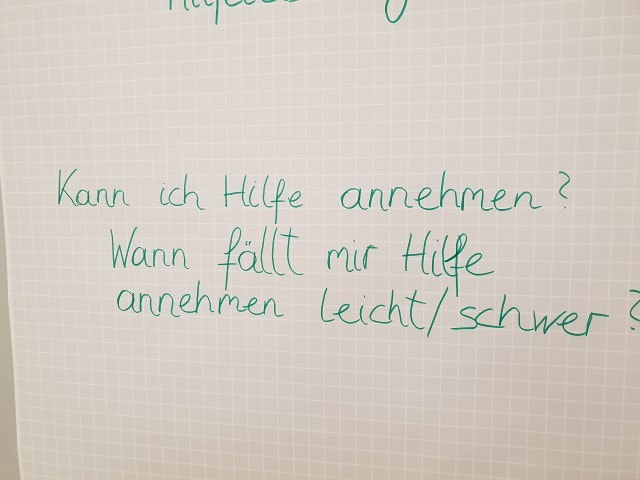 Kann ich Hilfe annehmen?
Wann fällt mir Hilfe
annehmen leicht/schwer?